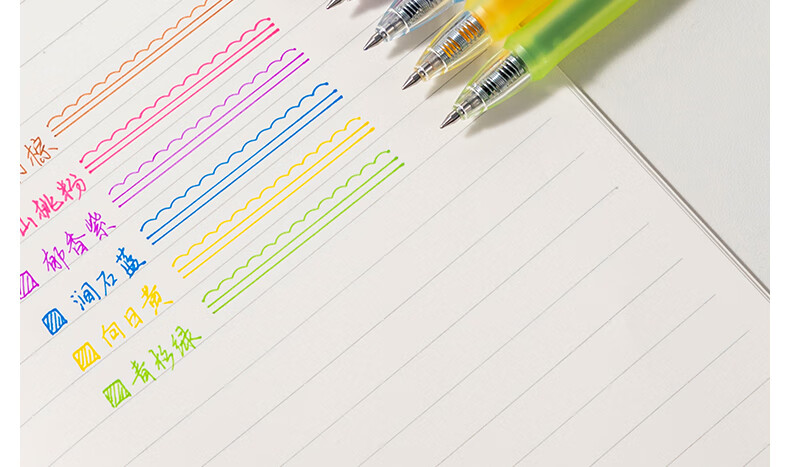 棕
山桃粉
郁香紫
涧石蓝
向日黄
青杉绿